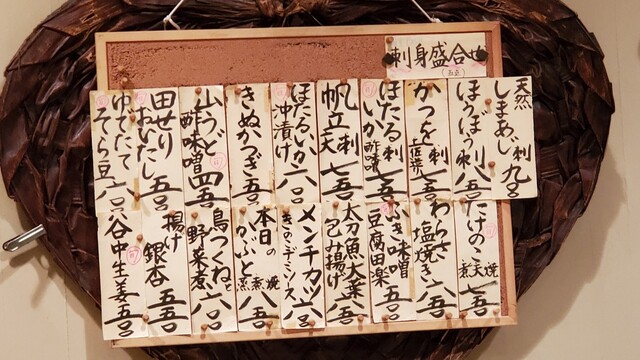 刺身盛合せ
天然
しまあじ刺 九〇〇
ほうぼう刺 八五〇
かつを刺 七五〇
ほたるいか 刺 酢味噌 七五〇
帆立 刺 天 七五〇
ほたるいか沖漬け 六〇〇
きぬかつぎ 五〇〇
山うど酢味噌 四五〇
田せりおひたし 五五〇
ゆでたてそら豆 六〇〇
たけのこ 焼 天 煮 七五〇
わらさ塩焼き 六五〇
ふき味噌豆腐田楽 五五〇
太刀魚大葉包み揚げ 八五〇
メンチカツ
きのこデミソース 六五〇
本日のかぶと 焼 煮 八五〇
鳥つくねと野菜煮 六〇〇
揚げ銀杏 五五〇
谷中生姜 五五〇